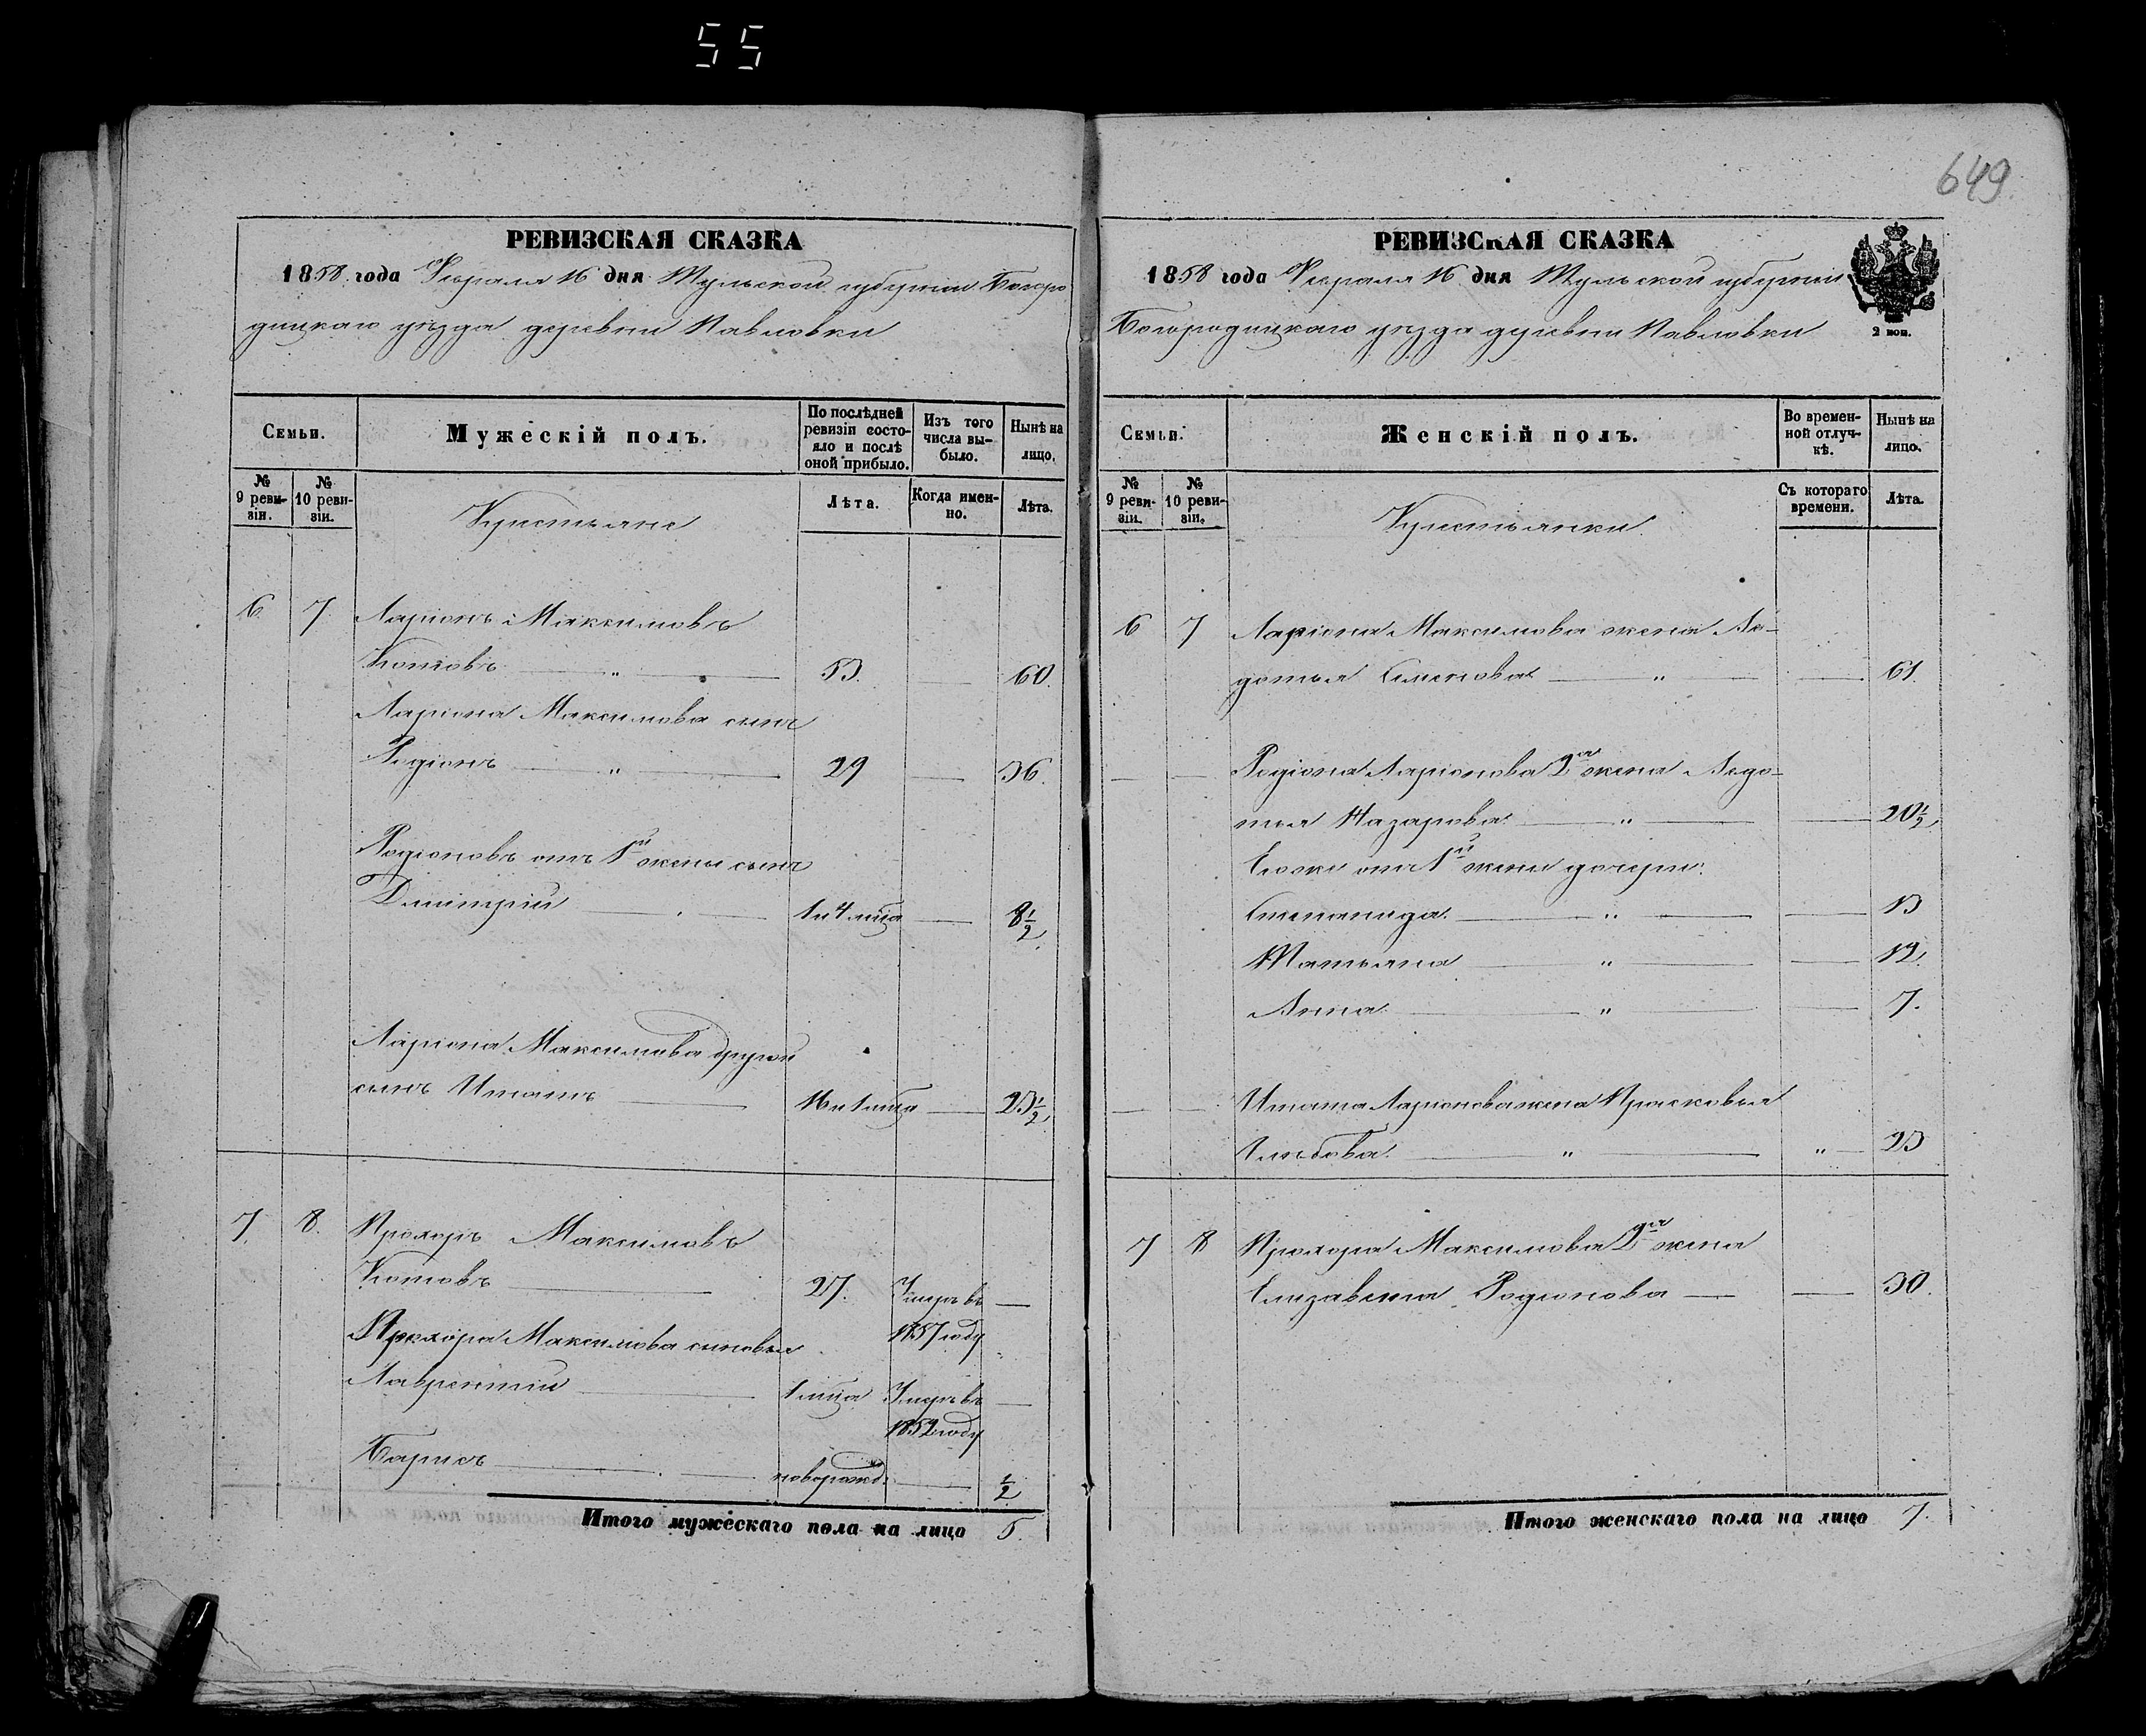 55
649
РЕВИЗСКАЯ СКАЗКА
1858 года Февраля 16 дня Тульской губернии Богоро
дицкаго уѣзда деревни Павловки
Семьи.
Мужескій полъ.
По послѣдней ревизіи состояло и послѣ оной прибыло.
Изъ того числа выбыло.
Нынѣ на лицо.
№ 9 ревизіи.
№ 10 ревизіи.
Крестьяне
Лѣта.
Когда именно.
Лѣта.
6. 7. Ларіонъ Максимовъ
Котовъ — " — 53. — 60.
Ларіона Максимова сынъ
Родіонъ — " — 29 — 36.
Родіоновъ отъ 1й жены сынъ
Дмитрій — 1и4 мѣца — 8½
Ларіона Максимова другой
сынъ Ипатъ — 16и1мѣца — 23½
7. 8. Прохоръ Максимовъ
Котовъ — 27. Умеръ въ —
1857 году
Прохора Максимова сыновья
Лаврентій — 1 мѣца Умеръ въ —
1852 году
Борисъ — новорожд: — ½
Итого мужескаго пола на лицо 5.
РЕВИЗСКАЯ СКАЗКА
1858 года Февраля 16 дня Тульской губерніи
Богородицкаго уѣзда деревни Павловки
2 коп.
Семьи.
Женскій полъ.
Во временной отлучкѣ.
Нынѣ на лицо.
№ 9 ревизіи.
№ 10 ревизіи.
Крестьянки
Съ котораго времени.
Лѣта.
6 7 Ларіона Максимова жена Ав-
дотья Семенова — " — — 61.
— — Родіона Ларіонова 2я жена Авдо-
тья Назарова — " — — 20½
Егоже отъ 1й жены дочери:
Степанида — " — — 13
Татьяна — " — — 12.
Анна — " — — 7.
— — Ипата Ларіонова жена Прасковья
Глѣбова — " — " — 23
7 8 Прохора Максимова 2я жена
Елизавета Родионова — — 30.
Итого женскаго пола на лицо 7.